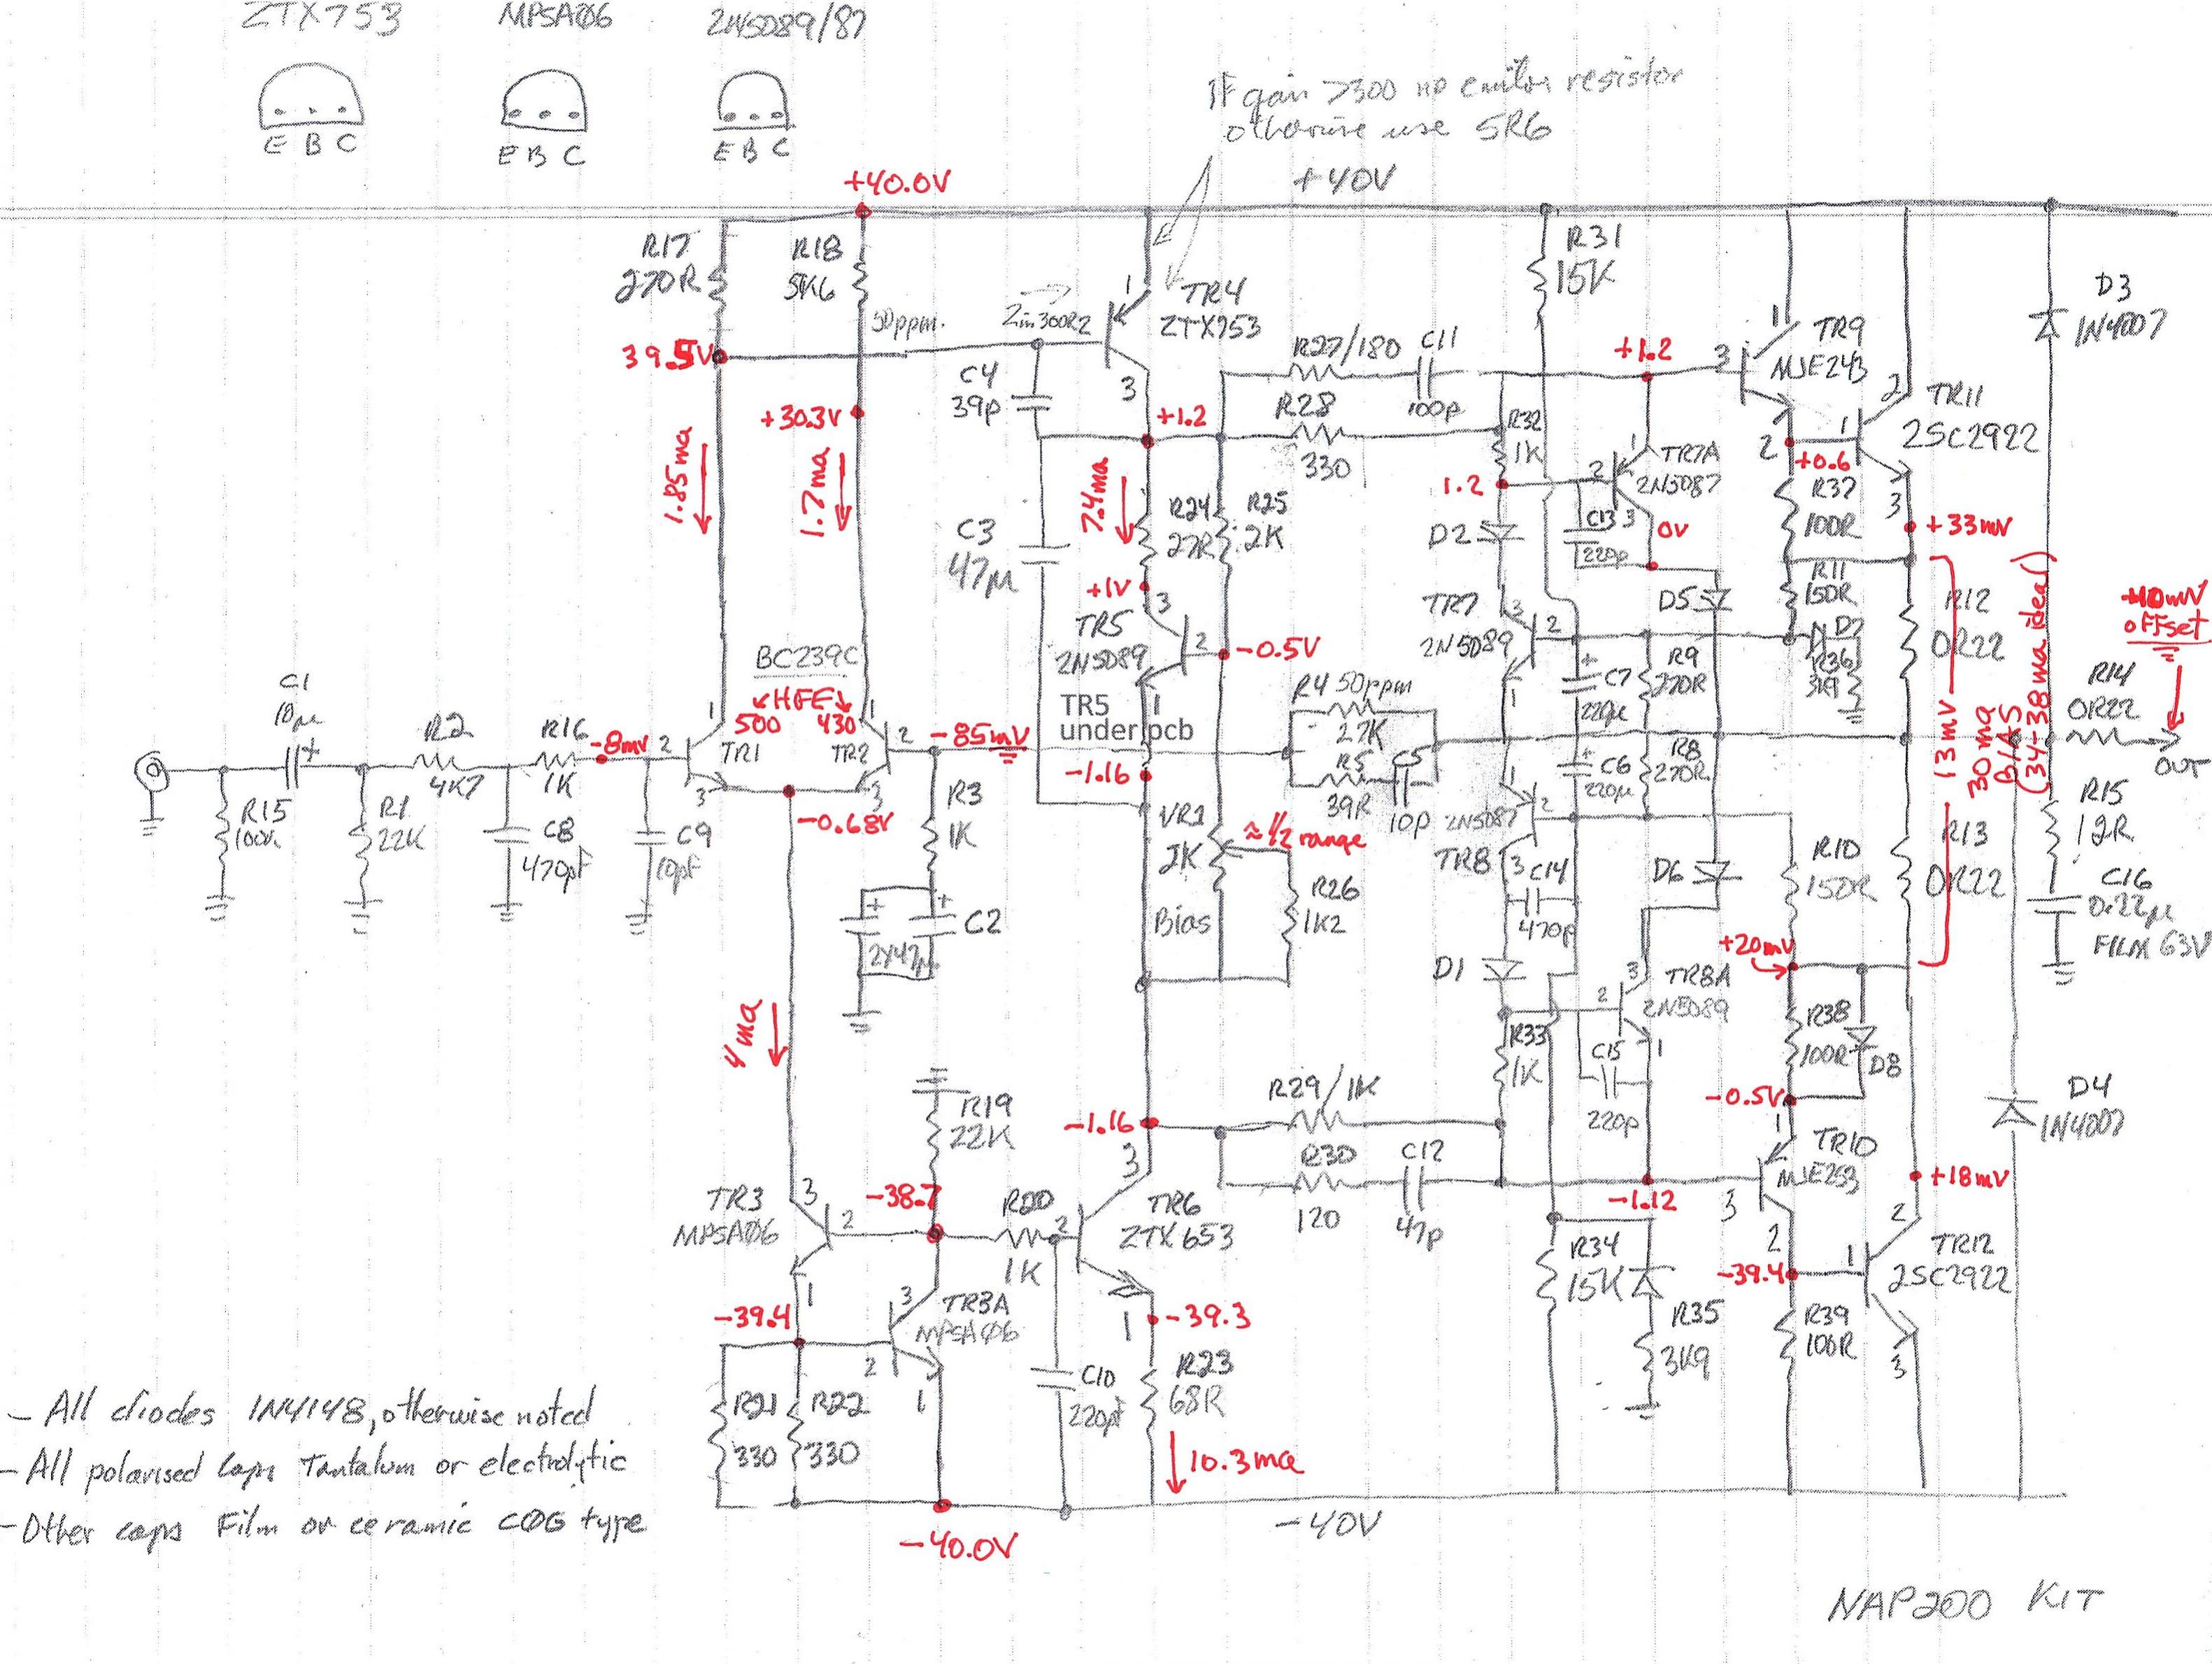 ZTX753
MPSA06
2N5089/87
E B C
E B C
E B C
If gain >300 no emitor resistor
otherwise use 5R6
+40.0V
+40V
R17
270R
R18
5K6
50ppm.
Zin300R2
1
TR4
ZTX753
3
R31
15K
D3
1N4007
39.5V
C4
39p
R27/180
C11
100p
+1.2
3
1
TR9
MJE243
2
+30.3V
+1.2
R28
330
R32
1K
1
TR7A
2N5087
2
3
2
+0.6
1
2
TR11
2SC2922
3
1.85ma
1.7ma
7.4ma
R24
27R
R25
2K
1.2
D2
C13
220p
0V
R37
100R
+33mV
C3
47µ
+1V
3
TR5
2N5089
2
1
-0.5V
TR7
2N5089
3
2
1
D5
R11
150R
D7
R36
3K9
R12
0R22
+10mV
offset
BC239C
HFE
500
430
TR5
under pcb
R4 50ppm
2.7K
R5
39R
C5
10p
C7
220µ
R9
270R
13mV
30ma
BIAS
(34-38ma ideal)
R14
0R22
OUT
C1
10µ
+
R2
4K7
R16
1K
-8mv
2
1
TR1
3
1
TR2
2
3
-85mV
-1.16
C6
220µ
R8
270R
R15
100K
R1
22K
C8
470pf
C9
10pf
-0.68V
R3
1K
VR1
2K
≈1/2 range
Bias
R26
1K2
1
2N5087
TR8
2
3
C14
470p
D6
R10
150R
R13
0R22
R15
12R
C16
0.22µ
FILM 63V
+
+
2x47µ
C2
D1
3
TR8A
2N5089
2
1
+20mV
4ma
R33
1K
C15
220p
R38
100R
D8
R19
22K
-1.16
R29/1K
-0.5V
D4
1N4007
R30
120
C12
47p
-1.12
1
TR10
MJE253
3
2
+18mV
TR3
MPSA06
3
2
1
-38.7
R20
1K
3
2
TR6
ZTX653
1
R34
15K
-39.4
1
2
TR12
2SC2922
3
-39.4
3
TR3A
MPSA06
2
1
-39.3
R35
3K9
R39
100R
R21
330
R22
330
C10
220pf
R23
68R
10.3ma
- All diodes 1N4148, otherwise noted
- All polarised caps Tantalum or electrolytic
- Other caps Film or ceramic C0G type
-40.0V
-40V
NAP200 KIT